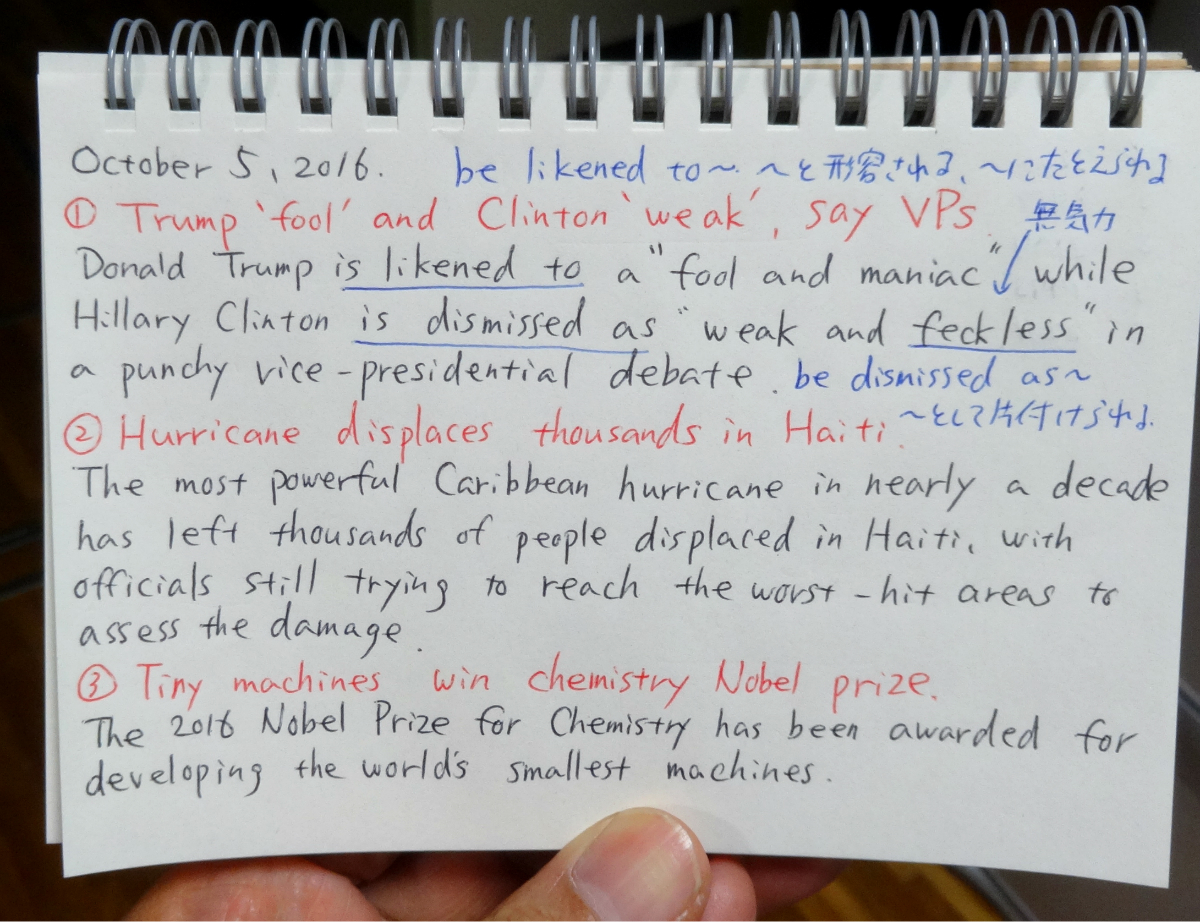 October 5, 2016. be likened to~ ~と形容される、~にたとえられる
① Trump 'fool' and Clinton 'weak', say VPs 無気力
Donald Trump is likened to a "fool and maniac" while
Hillary Clinton is dismissed as "weak and feckless" in
a punchy vice-presidential debate. be dismissed as~
② Hurricane displaces thousands in Haiti. ~として片付けられる.
The most powerful Caribbean hurricane in nearly a decade
has left thousands of people displaced in Haiti, with
officials still trying to reach the worst-hit areas to
assess the damage.
③ Tiny machines win chemistry Nobel prize.
The 2016 Nobel Prize for Chemistry has been awarded for
developing the world's smallest machines.